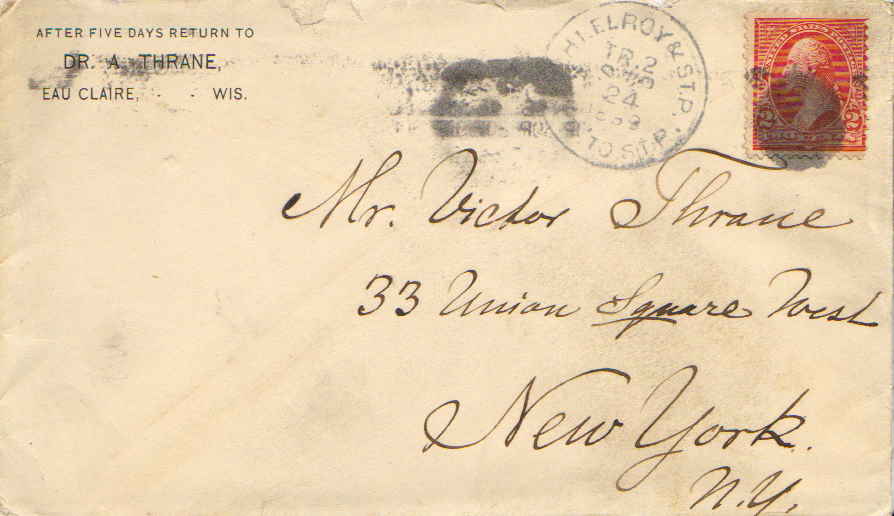 AFTER FIVE DAYS RETURN TO
DR. A. THRANE,
EAU CLAIRE, - - WIS.
ELROY & ST.P.
TR.2
24
TO ST.P.
Mr. Victor Thrane
33 Union Square West
New York.
N.Y.